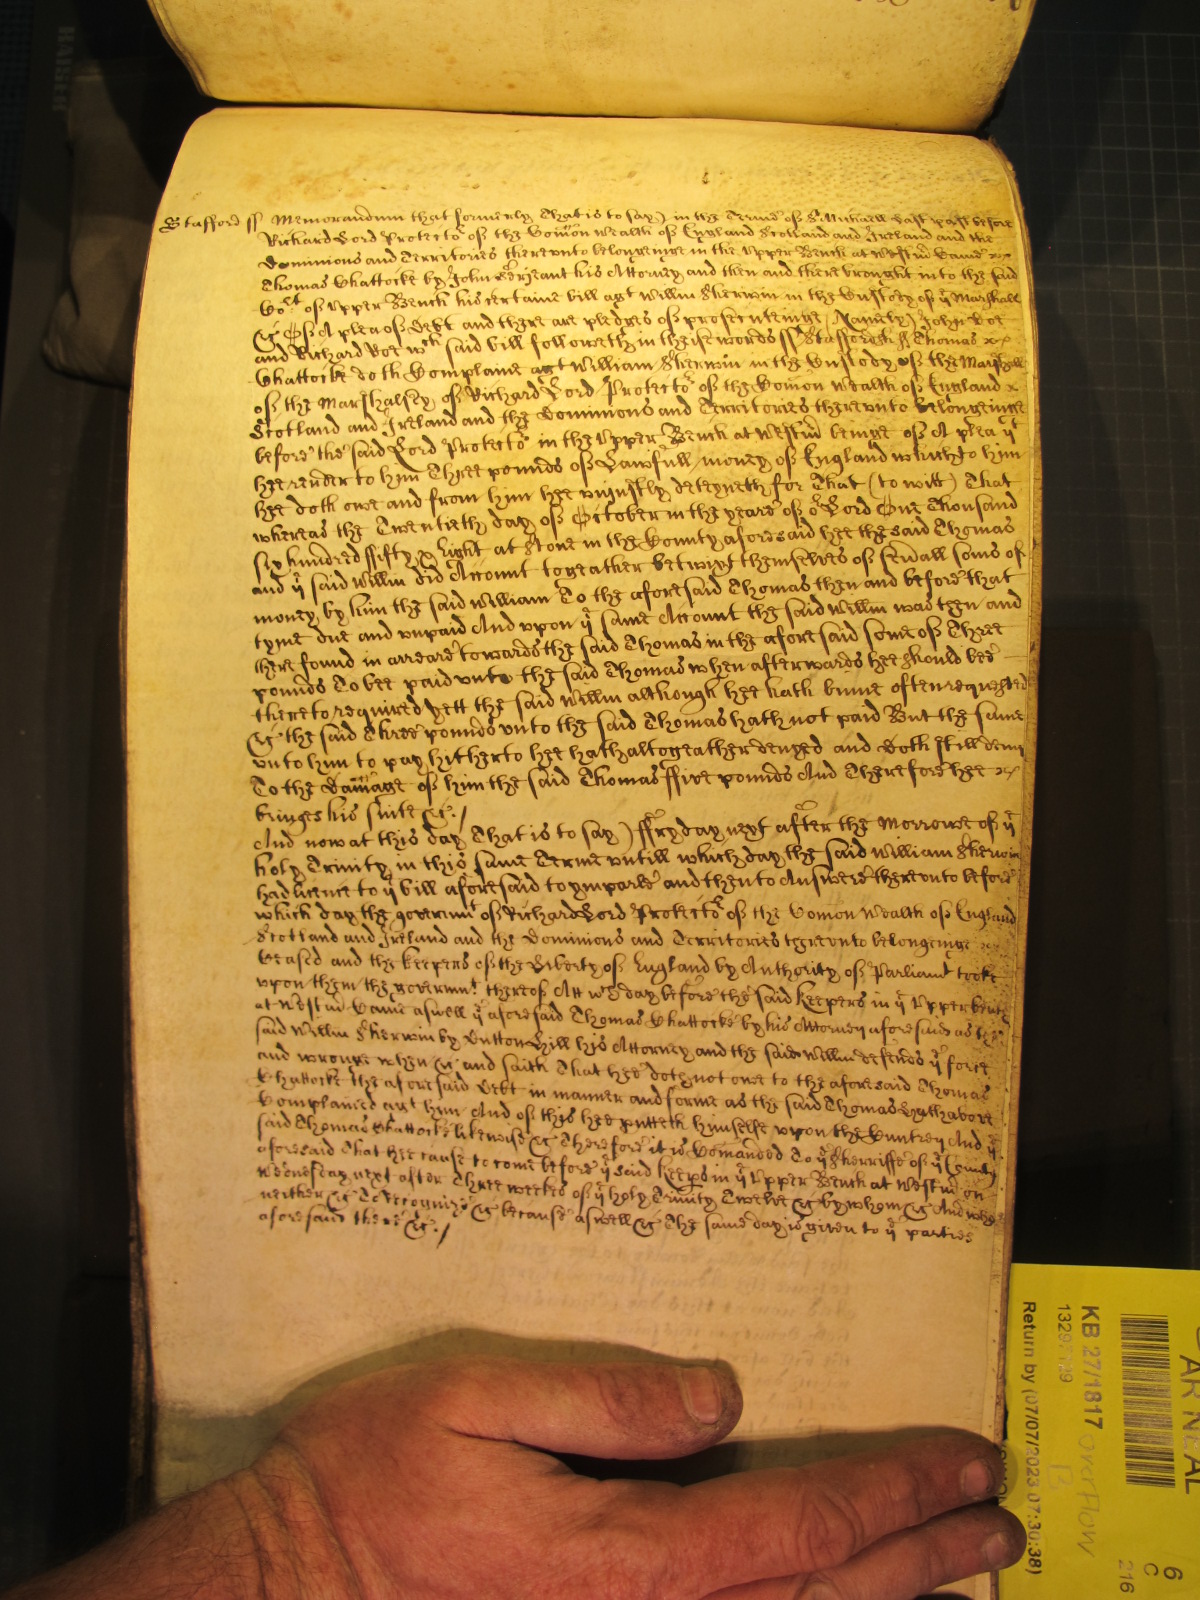 Stafford ss Memorandum that formerly That is to say) in the Terme of St Michaell Last past before
Richard Lord Protector of the Comon Wealth of England Scotland and Ireland and the
Dominions and Territories thereunto belongeinge in the Upper Bench at Westmr Came
Thomas Chattocke by John Serjeant his Attorney and then and there brought into the said
Court of Upper Bench his certaine bill agt Willm Sherwin in the Custody of ye Marshall
&c Of A plea of Debt and there are pledges of prosecuteinge (Namely) John Doe
and Richard Roe wch said bill followeth in theise words ss Staffordsh ss Thomas
Chattocke doth Complaine agt William Sherwin in the Custody of the Marshall
of the Marshalsey of Richard Lord Protector of the Comon Wealth of England
Scotland and Ireland and the Dominions and Territories thereunto belongeinge
before the said Lord Protector in the Upper Bench at Westmr beinge of A plea yt
hee render to him Three pounds of Lawfull money of England which to him
hee doth owe and from him hee uniustly deteyneth for That (to witt) That
whereas the Twentieth day of October in the yeare of or Lord One Thousand
six hundred ffifty & Eight at Stone in the County aforesaid hee the said Thomas
and ye said Willm did Account togeather betwixt themselves of sevall soms of
money by him the said William To the aforesaid Thomas then and before that
tyme due and unpaid And upon ye same Account the said Willm was then and
there found in arreare towards the said Thomas in the aforesaid some of Three
pounds To bee paid unto the said Thomas when afterwards hee should bee
thereto required yett the said Willm although hee hath binne often requested
&c the said Three pounds unto the said Thomas hath not paid But the same
unto him to pay hitherto hee hath altogeather denyed and doth still deny
To the Damage of him the said Thomas ffive pounds And Therefore hee
bringes his suite &c./
And now at this day That is to say) ffryday next after the Morrowe of ye
holy Trinity in this same Terme untill which day the said William Sherwin
had licence to ye bill aforesaid to ymparle and then to Answere thereunto before
which day the govermt of Richard Lord Protector of the Comon Wealth of England
Scotland and Ireland and the Dominions and Territories thereunto belongeinge
Ceased and the Keepers of the Liberty of England by Authority of Parliamt tooke
upon them the govermt thereof Att wch day before the said Keepers in ye Upper bench
at Westmr Came aswell ye aforesaid Thomas Chattocke by his Attorney aforesaid as the
said Willm Sherwin by Dutton Hill his Attorney and the said Willm defends ye force
and wronge when &c and saith That hee doth not owe to the aforesaid Thomas
Chattocke the aforesaid Debt in manner and forme as the said Thomas hath above
Complained agt him And of this hee putteth himselfe upon the Cuntrey And ye
said Thomas Chattocke likewise &c Therefore it is Comanded To ye Sherriffe of ye County
aforesaid That hee cause to come before ye said Keeps in ye Upper Bench at Westmr on
Wednesday next after Three weekes of ye holy Trinity Twelve &c by whom &c And who
neither &c To recognize &c because aswell &c The same day is given to ye parties
aforesaid there &c./
KB 27/1817 overflow
Return by (07/07/2023 07:30:38)
6
C
216